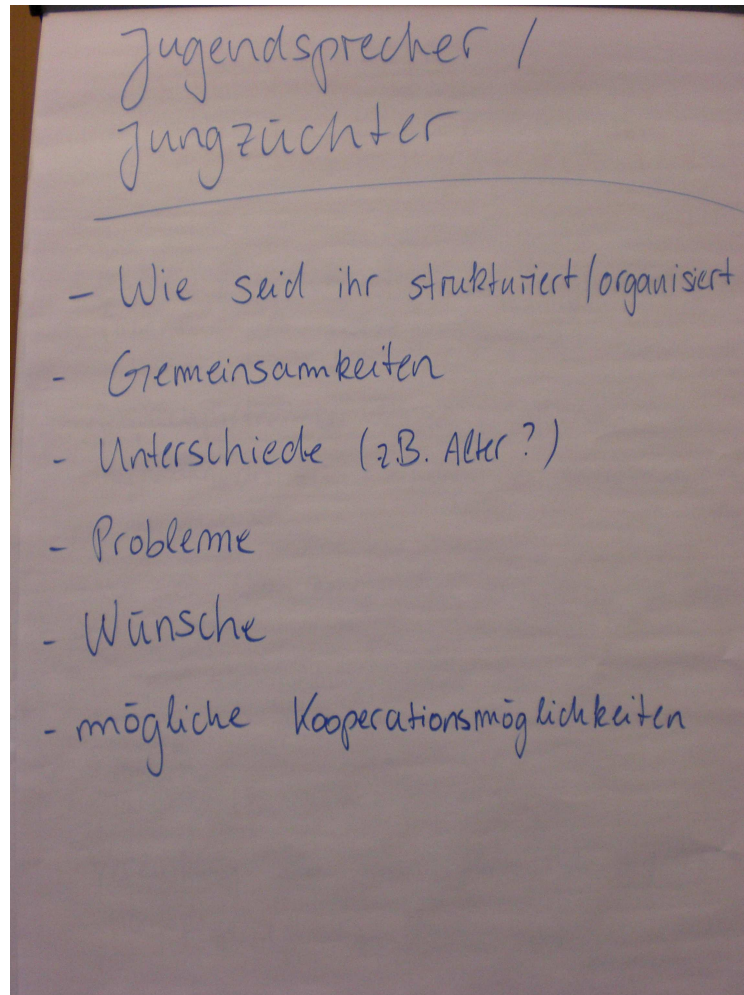 Jugendsprecher /
Jungzüchter
- Wie seid ihr strukturiert/organisiert
- Gemeinsamkeiten
- Unterschiede (z.B. Alter?)
- Probleme
- Wünsche
- mögliche Kooperationsmöglichkeiten